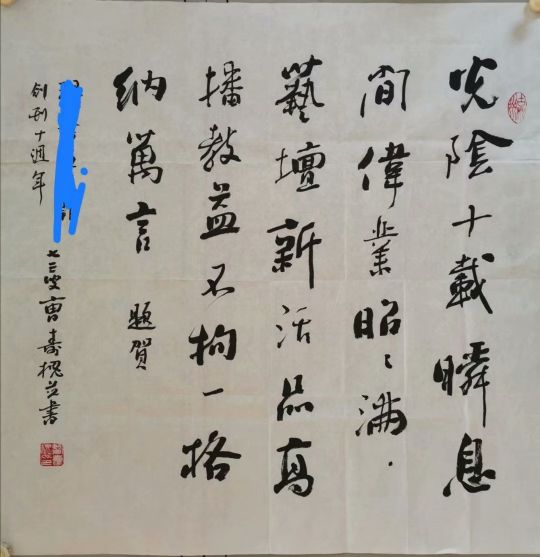 光陰十載瞬息
間偉業昭〻满
藝壇新活品高
播教益不拘一格
納萬言 題賀
創刊十週年
七三叟曹壽槐並書